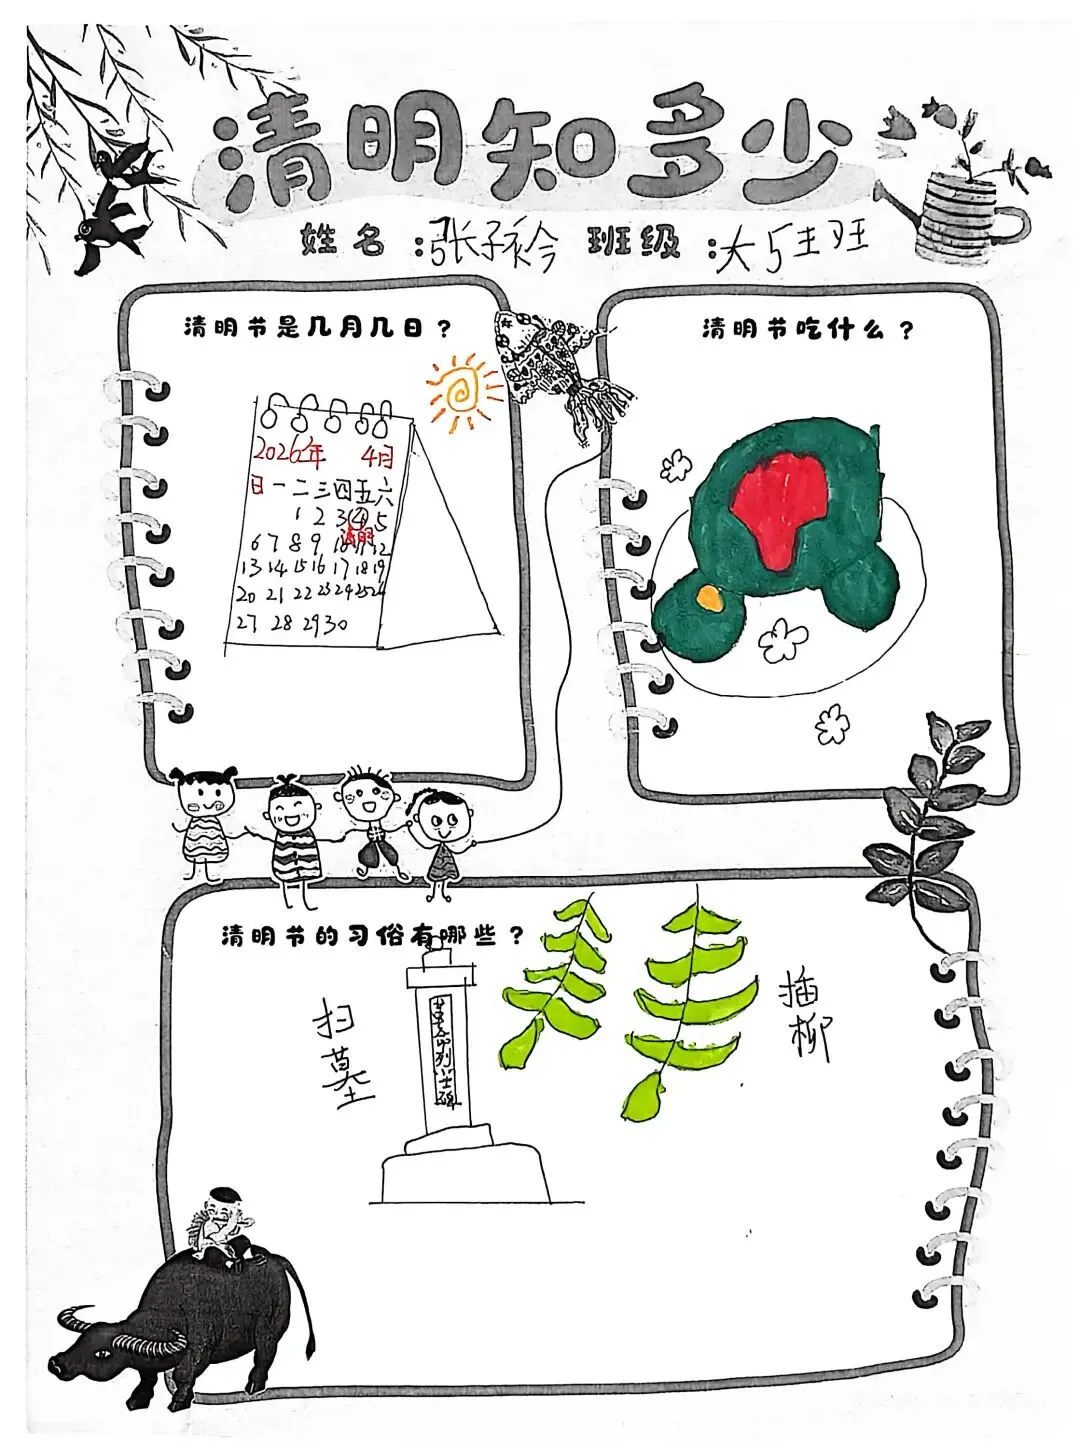 清明知多少
姓名:张子衿 班级:大5班
清明节是几月几日?
2026年 4月
日一二三四五六
1 2 3 4 5
清明
6 7 8 9 10 11 12
13 14 15 16 17 18 19
20 21 22 23 24 25 26
27 28 29 30
清明节吃什么?
清明节的习俗有哪些?
扫墓
革命烈士碑
插柳